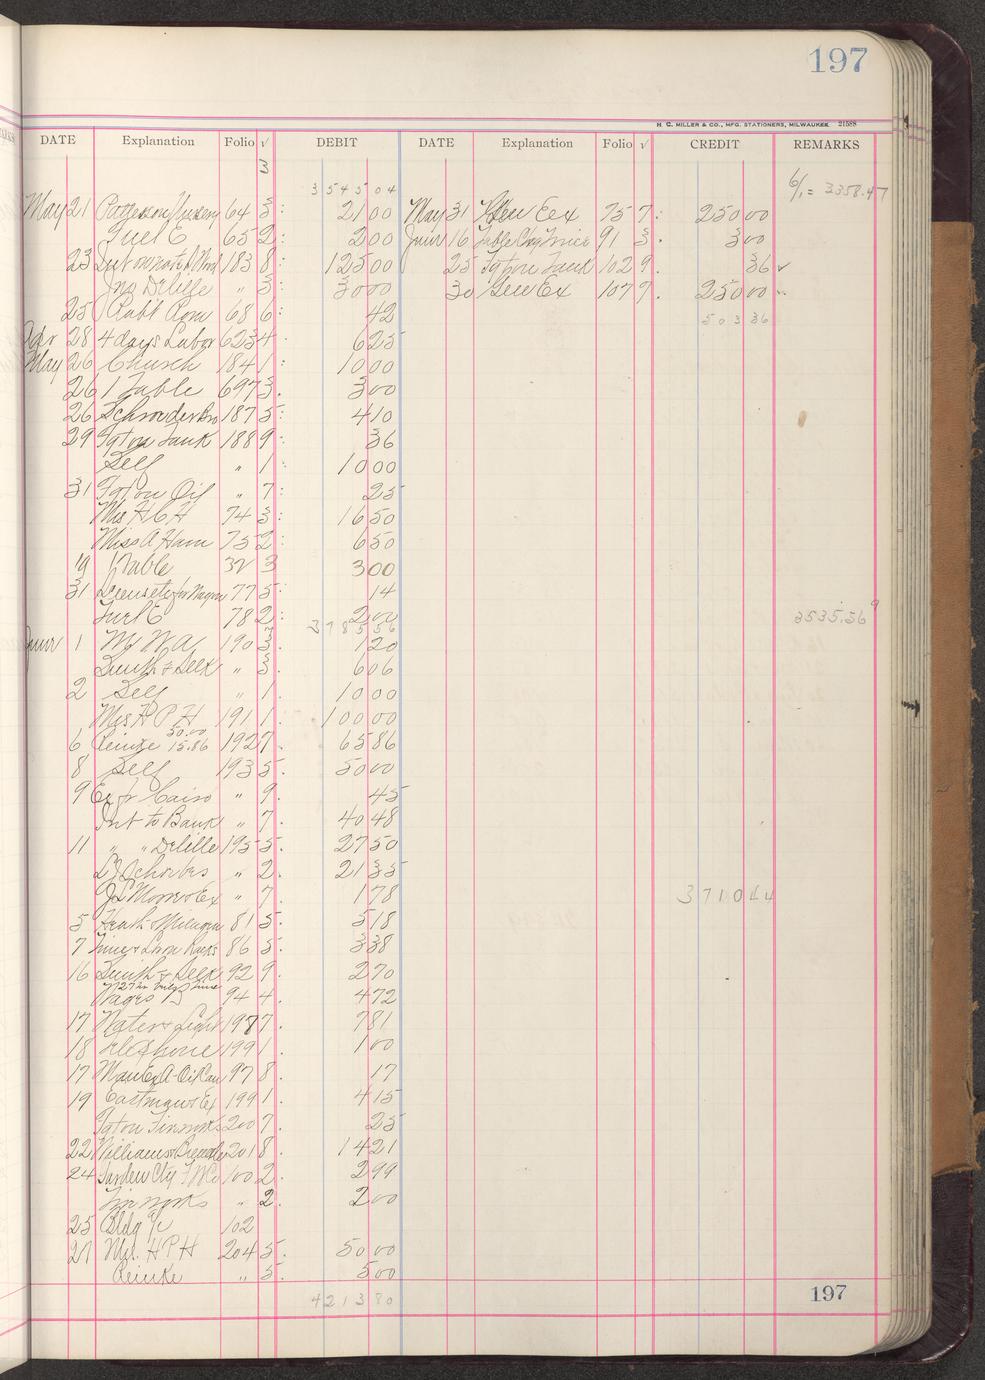 197
H. C. MILLER & CO., MFG. STATIONERS, MILWAUKEE 21588
DATE Explanation Folio √ DEBIT DATE Explanation Folio √ CREDIT REMARKS
3
3545 04 6/1 = 3358.47
May 21 64 3: 21 00 May 31 Gen Ex 75 7: 250 00
Fuel E 65 2: 2 00 June 16 91 3. 3 00
23 183 8: 125 00 25 Fgt on Tank 102 9. 36 ✓
Jno Delille " 5: 30 00 30 Gen Ex 107 7. 250 00
25 68 6: 42 503 36
Apr 28 4 days Labor 623 4: 6 25
May 26 Church 184 1: 10 00
26 1 Table 697 3. 3 00
26 Schroeder Bro 187 5: 4 10
29 Fgt on Tank 188 9: 36
Self " 1: 10 00
31 Fgt on Oil " 7: 25
Mrs H C H 74 3: 16 50
Miss A Ham 75 2: 6 50
19 1 Table 32 3 3 00
31 77 5: 14
Fuel E 78 2: 2 00 3535.56
3785 56
June 1 M W A 190 3: 1 20
Smith & Seex " 3: 6 06
2 Self " 1. 10 00
Mrs H P H 191 1. 100 00
50.00
6 Reinke 15.86 192 7. 65 86
8 Self 193 5. 50 00
9 Ex fr Cairo " 9. 45
Int to Bank " 7. 40 48
11 " " Delille 195 5. 27 50
" 2. 21 35
" 7. 1 78 3710 44
5 81 5. 5 18
7 86 5. 3 38
16 Smith & Seex 92 9. 2 70
Wages 94 4. 4 72
17 Water & Light 198 7. 7 81
18 Telephone 199 1. 1 00
17 97 8. 17
19 Eastman & Ex 199 1. 4 15
Fgt on Fireworks 200 7. 25
22 201 8. 14 21
24 Garden City 100 2. 2 99
Fireworks " 2. 2 00
25 Bldg a/c 102
27 Mrs. H P H 204 5. 50 00
Reinke " 5. 5 00
4213 80 197